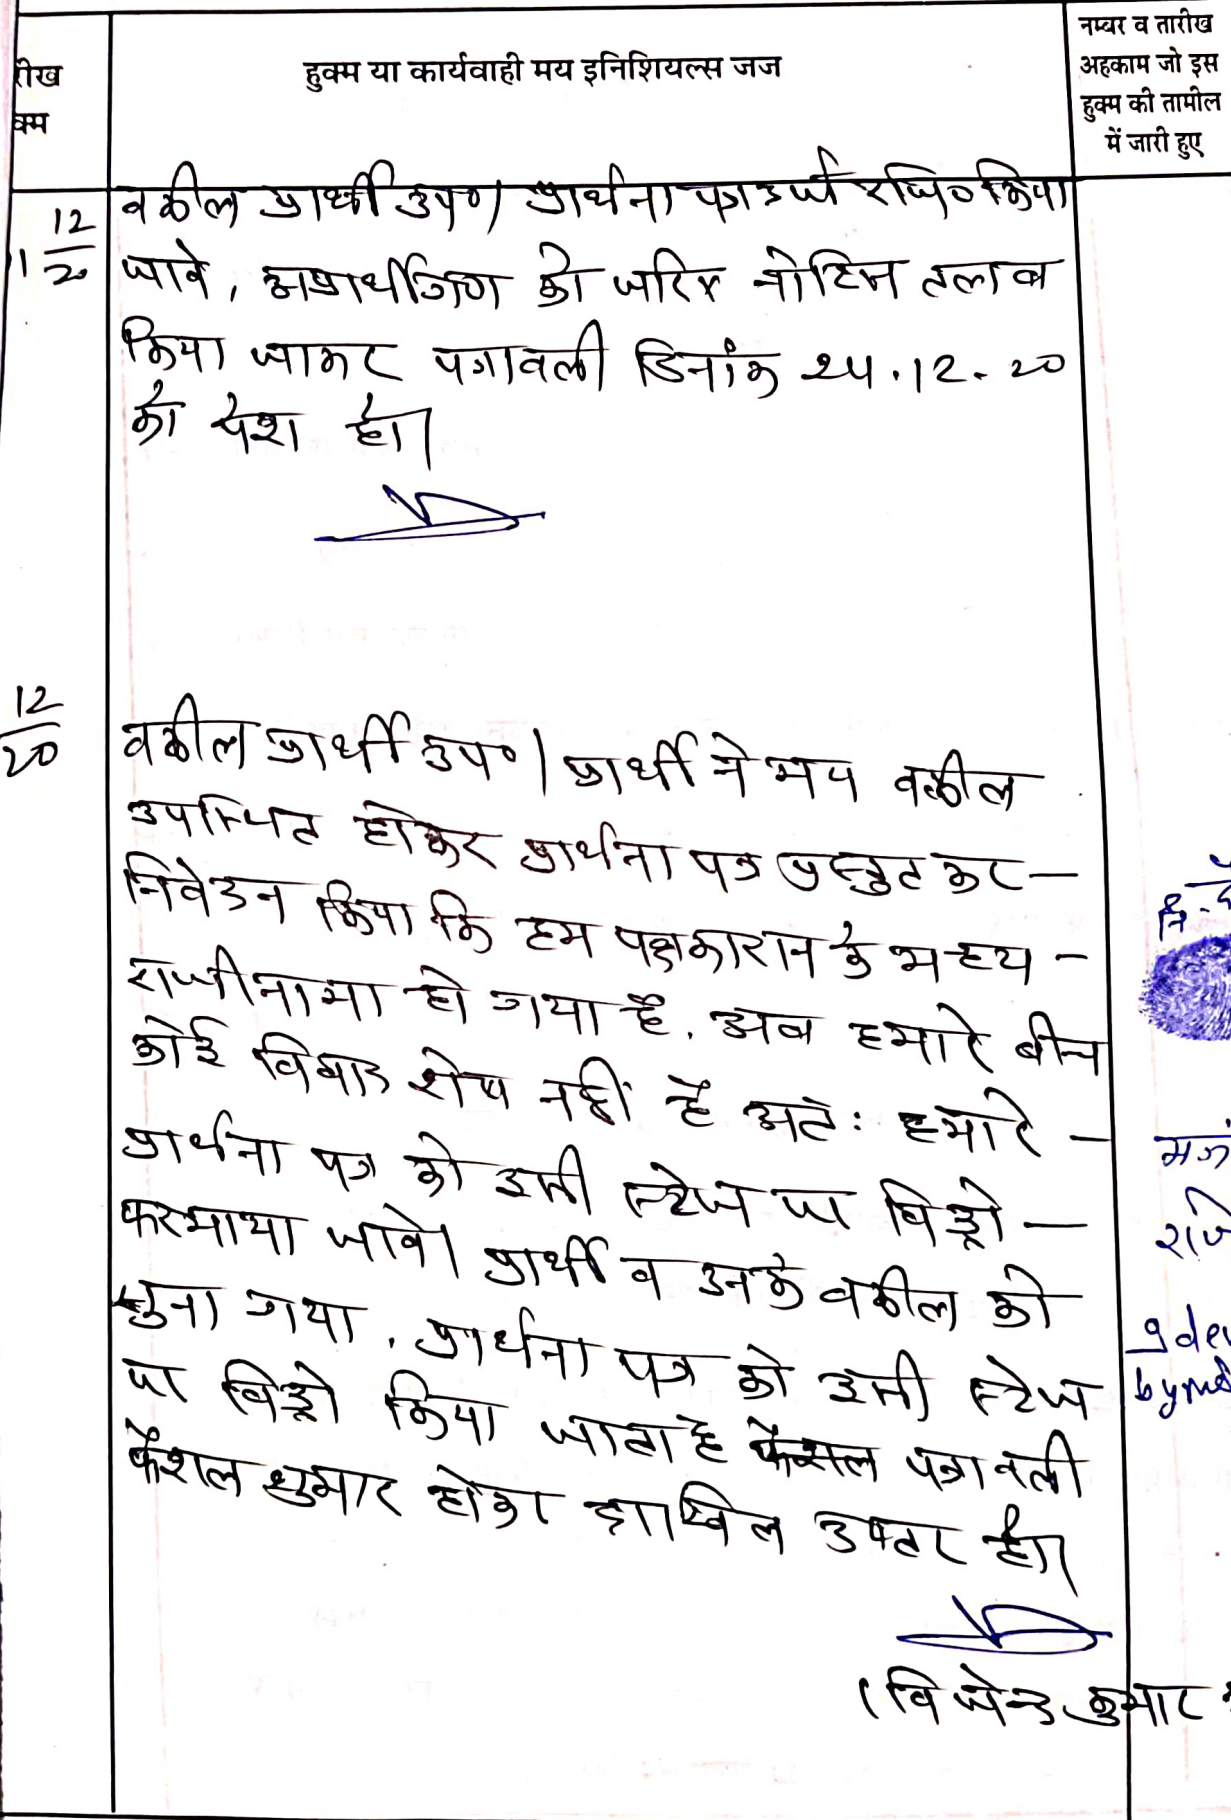 रीख
क्म
हुक्म या कार्यवाही मय इनिशियल्स जज
नम्बर व तारीख
अहकाम जो इस
हुक्म की तामील
में जारी हुए
12
20
वकील प्रार्थी उप०। प्रार्थना पत्र दर्ज रजि० किया
जावे, अप्रार्थीगण को जरिए नोटिस तलब
किया जाकर पत्रावली दिनांक 24.12.20
को पेश हो।
12
20
वकील प्रार्थी उप०। प्रार्थी ने मय वकील
उपस्थित होकर प्रार्थना पत्र प्रस्तुत कर –
निवेदन किया कि हम पक्षकारान के मध्य –
राजीनामा हो गया है. अब हमारे बीच
कोई विवाद शेष नहीं है अतः हमारे –
प्रार्थना पत्र को इसी स्टेज पर विड्रो –
फरमाया जावे। प्रार्थी व उनके वकील को
सुना गया. प्रार्थना पत्र को इसी स्टेज
पर विड्रो किया जाता है फैसल पत्रावली
फैशल शुमार होकर दाखिल दफ्तर हो।
(विजेन्द्र कुमार